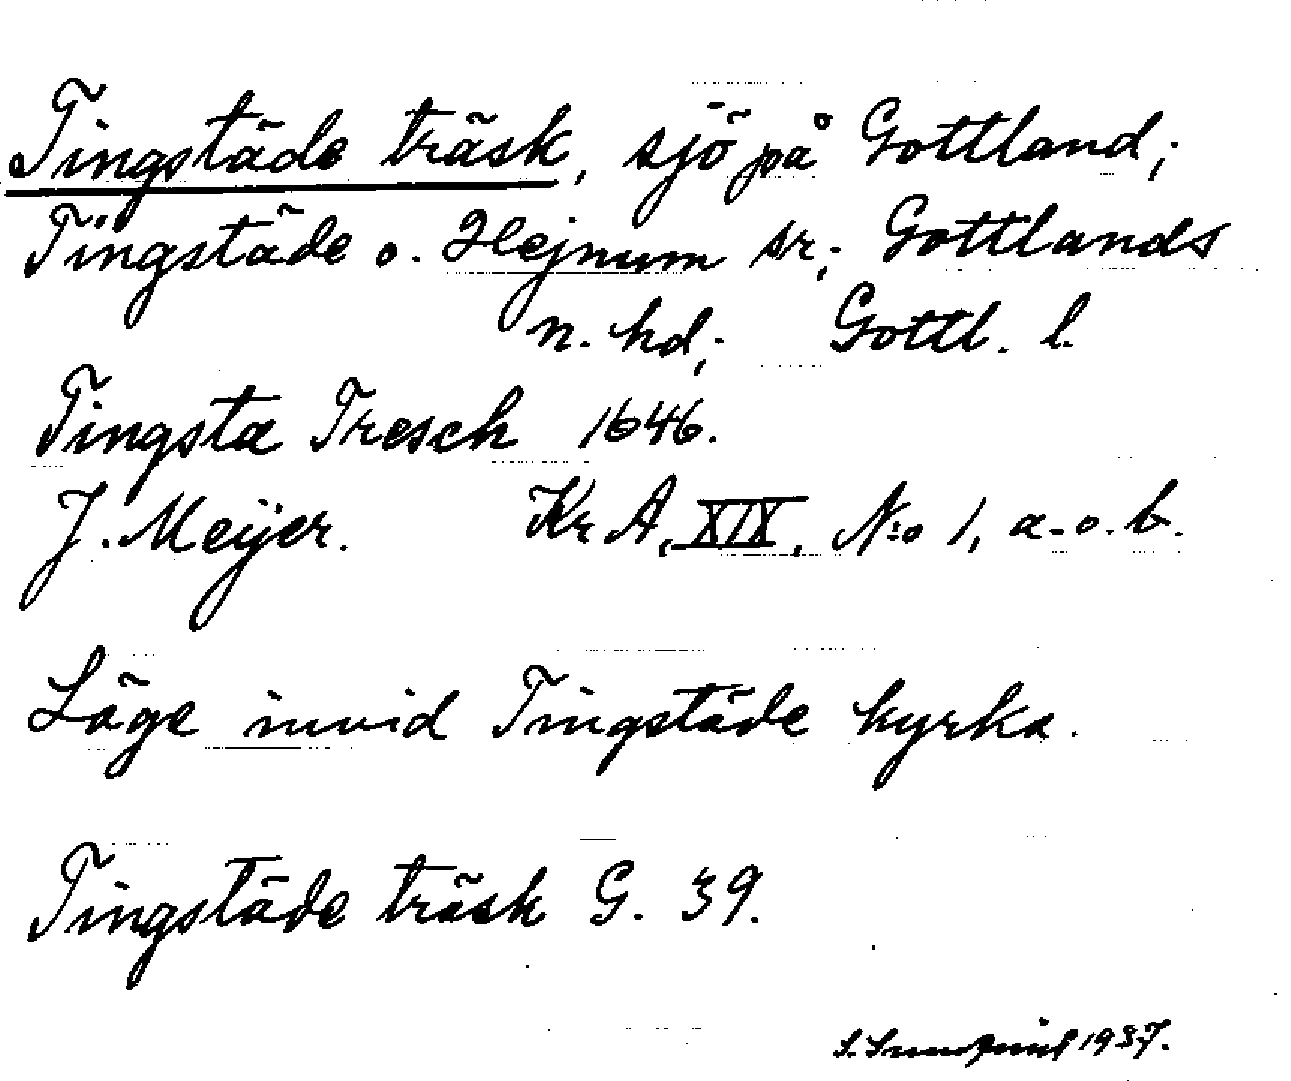 Tingstäde träsk, sjö på Gottland;
Tingstäde o. Hejnum sr; Gottlands
n. hd; Gottl. l.
Tingsta Tresch 1646.
J. Meijer. Kr A, XIX, N:o 1, a. o. b.
Läge invid Tingstäde kyrka.
Tingstäde träsk G. 39.
S. 1937.